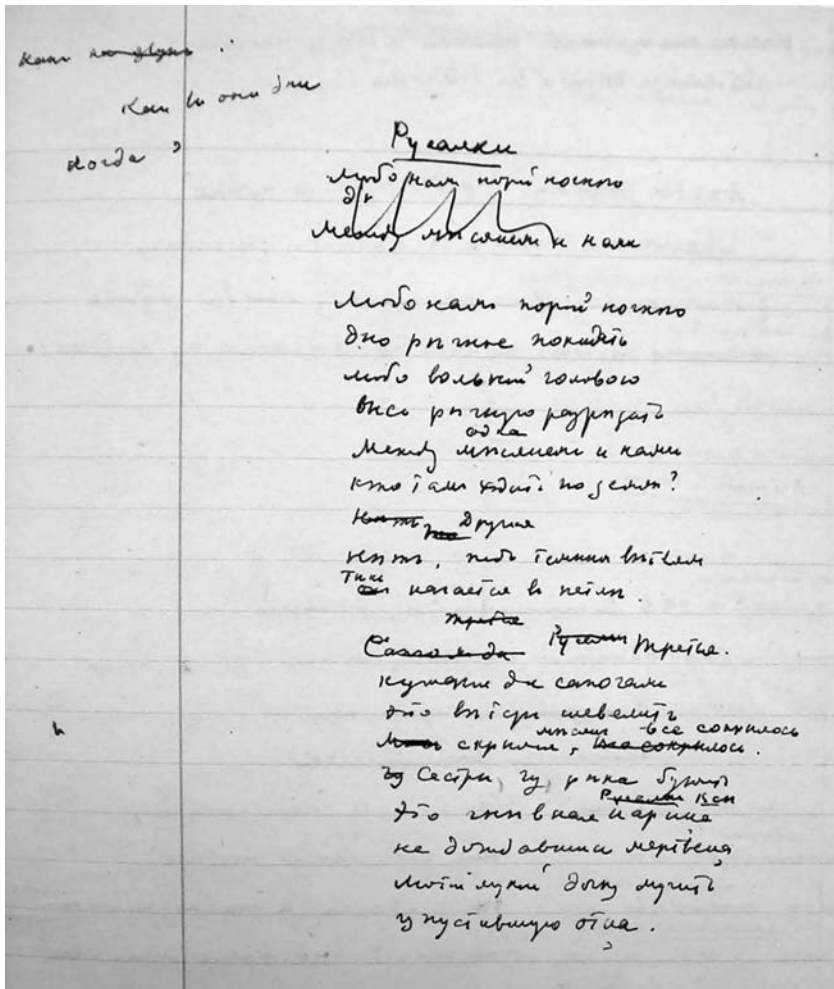 Когда ?
Русалки
Любо намъ порой ночною
Между мѣсяцемъ и нами
Любо намъ порой ночною
дно рѣчное покидать
любо вольной головою
высь рѣчную разрезать
одна
Между мѣсяцемъ и нами
кто тамъ ходитъ по земли?
Нѣтъ Другая
нѣтъ, подъ тонкими вѣтвями
качается въ петли.
третья
Русалки третья.
кушакомъ да сапогами
это вѣтеръ шевелитъ
мѣсяцъ все сокрылось
скрылся, все сокрылось.
Сестры, чу рѣка бурлитъ
Русалки все
Это гнѣвная царица
не дождавшися мертвеца
лютой мукой дочку мучитъ
упустившую отца.